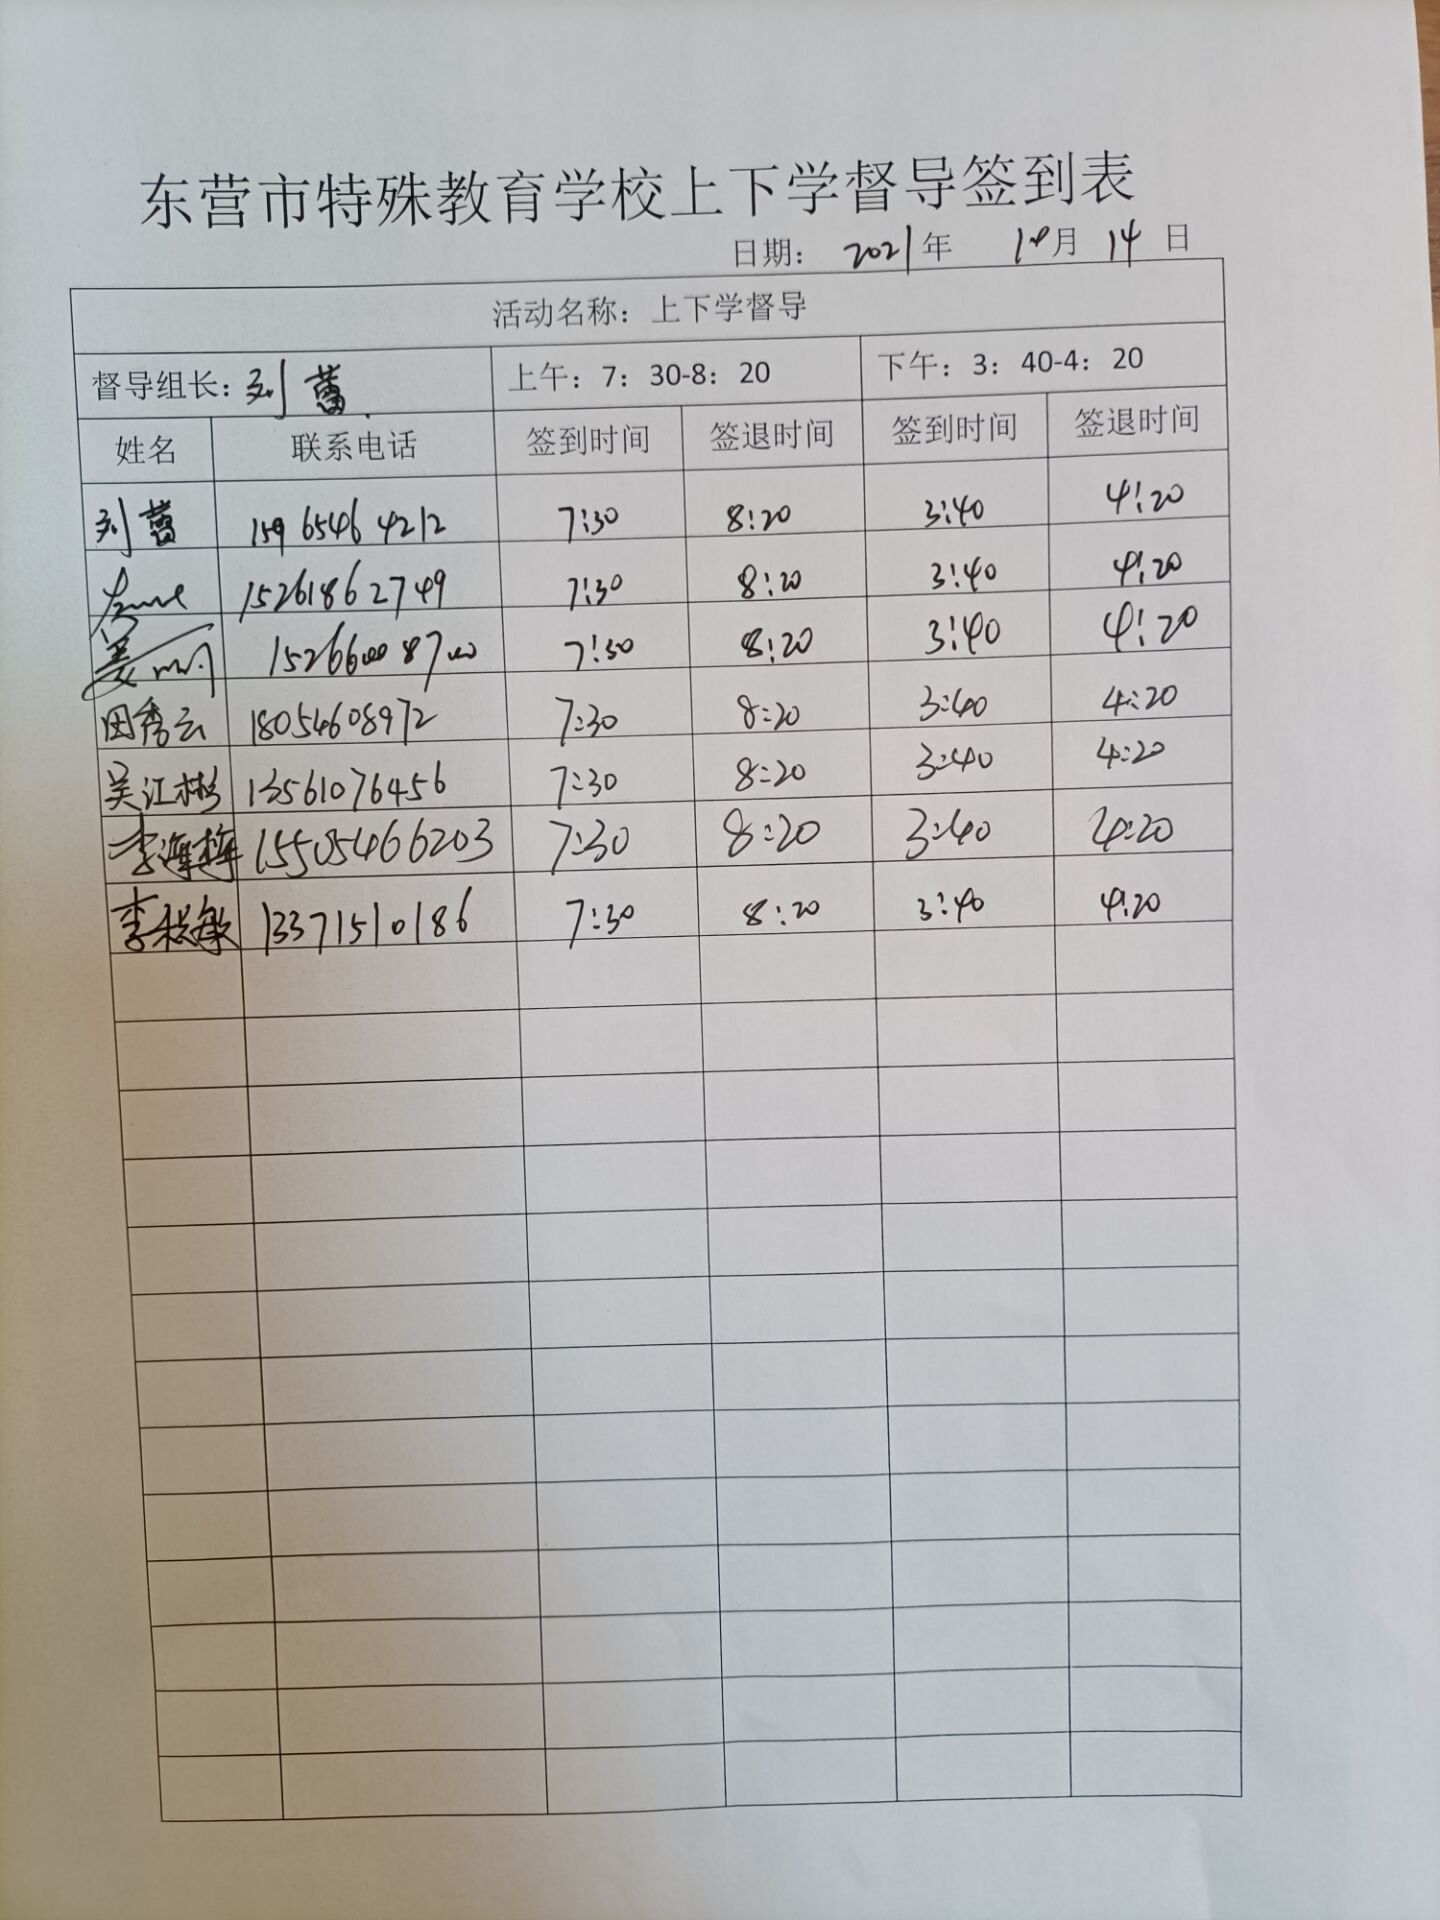 东营市特殊教育学校上下学督导签到表
日期： 2021年 10月 14 日
活动名称：上下学督导
督导组长：刘蕾 上午：7：30-8：20 下午：3：40-4：20
姓名 联系电话 签到时间 签退时间 签到时间 签退时间
刘蕾 15965464212 7:30 8:20 3:40 4:20
15261862749 7:30 8:20 3:40 4:20
姜 7:30 8:20 3:40 4:20
田秀云 18054608972 7:30 8:20 3:40 4:20
吴江彬 13561076456 7:30 8:20 3:40 4:20
李海梅 15505466203 7:30 8:20 3:40 4:20
李秋敏 13371510186 7:30 8:20 3:40 4:20